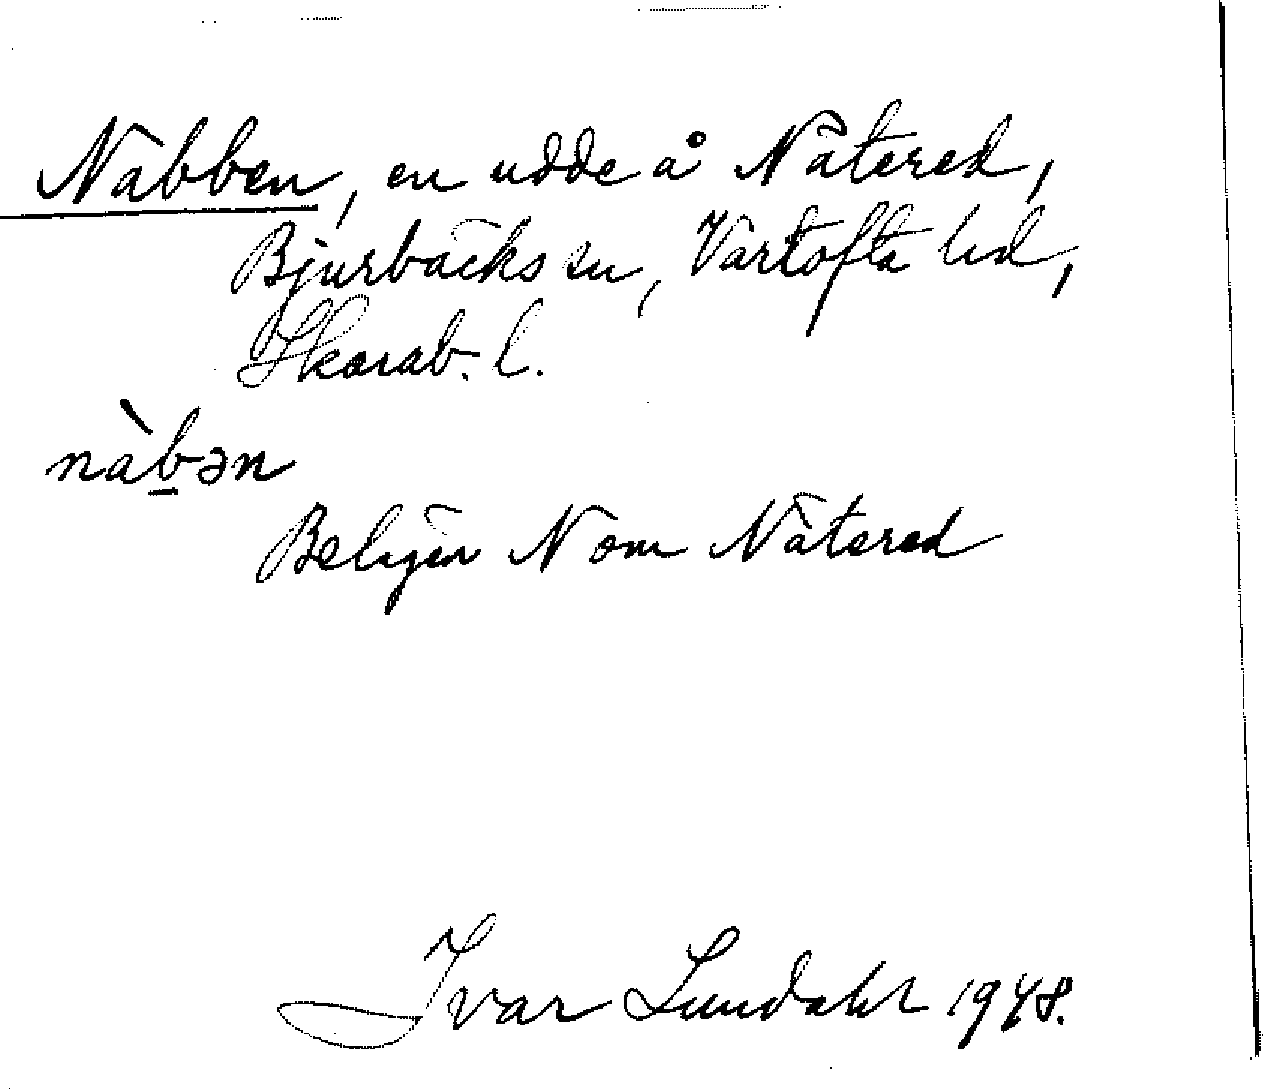 Näbben, en udde å Nätered,
Bjurbäcks sn, Vartofta hd,
Skarab. l.
nàb̲ən
Belägen N om Nätered
Ivar Lundahl 1948.